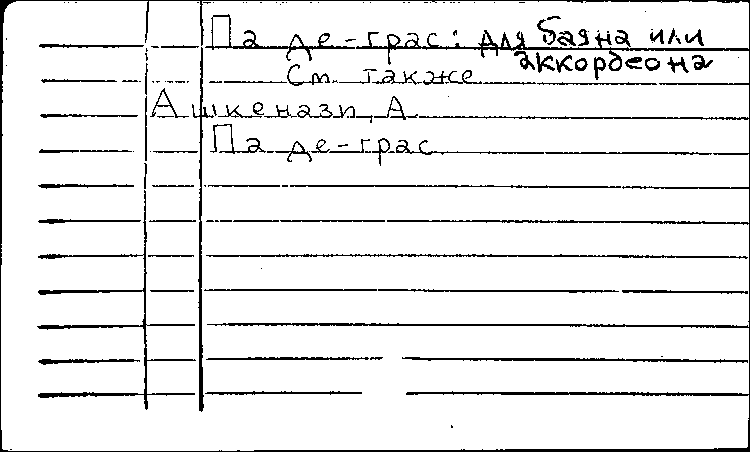 Па де-грас: для баяна или
аккордеона
См. также
Ашкенази, А.
Па де-грас.